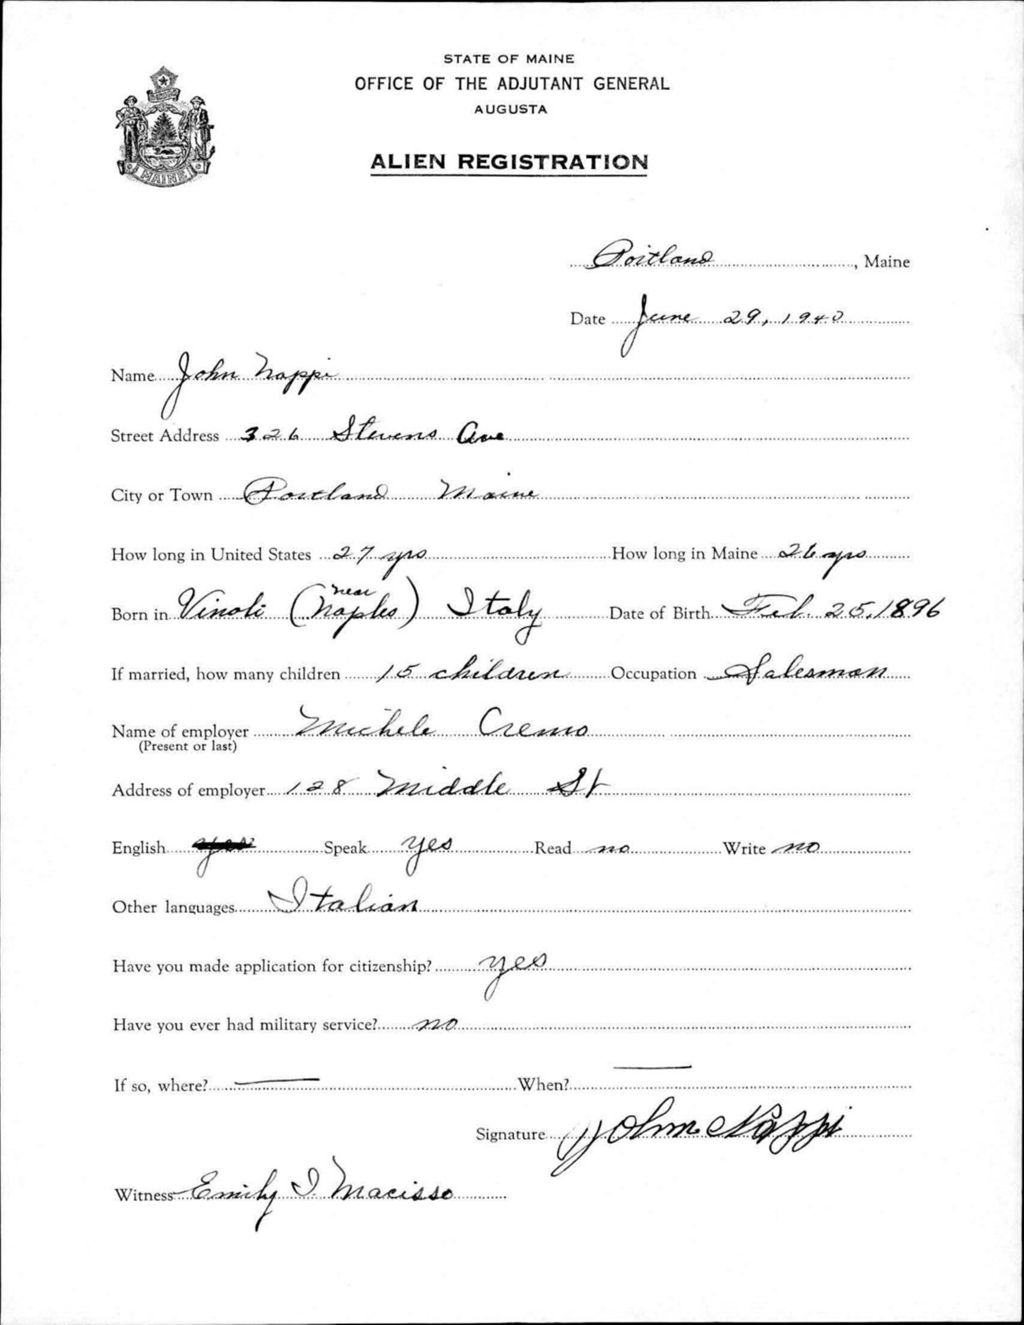 STATE OF MAINE
OFFICE OF THE ADJUTANT GENERAL
AUGUSTA
ALIEN REGISTRATION
MAINE
Portland, Maine
Date June 29, 1940
Name John Nappi
Street Address 326 Stevens Ave
City or Town Portland Maine
How long in United States 27 yrs How long in Maine 26 yrs
Born in Vinoli (near Naples) Italy Date of Birth Feb. 25, 1896
If married, how many children 15 children Occupation Salesman
Name of employer Michele Cremo
(Present or last)
Address of employer 128 Middle St
English yes Speak yes Read no Write no
Other languages Italian
Have you made application for citizenship? yes
Have you ever had military service? no
If so, where? — When? —
Signature John Nappi
Witness Emily I. Macisso